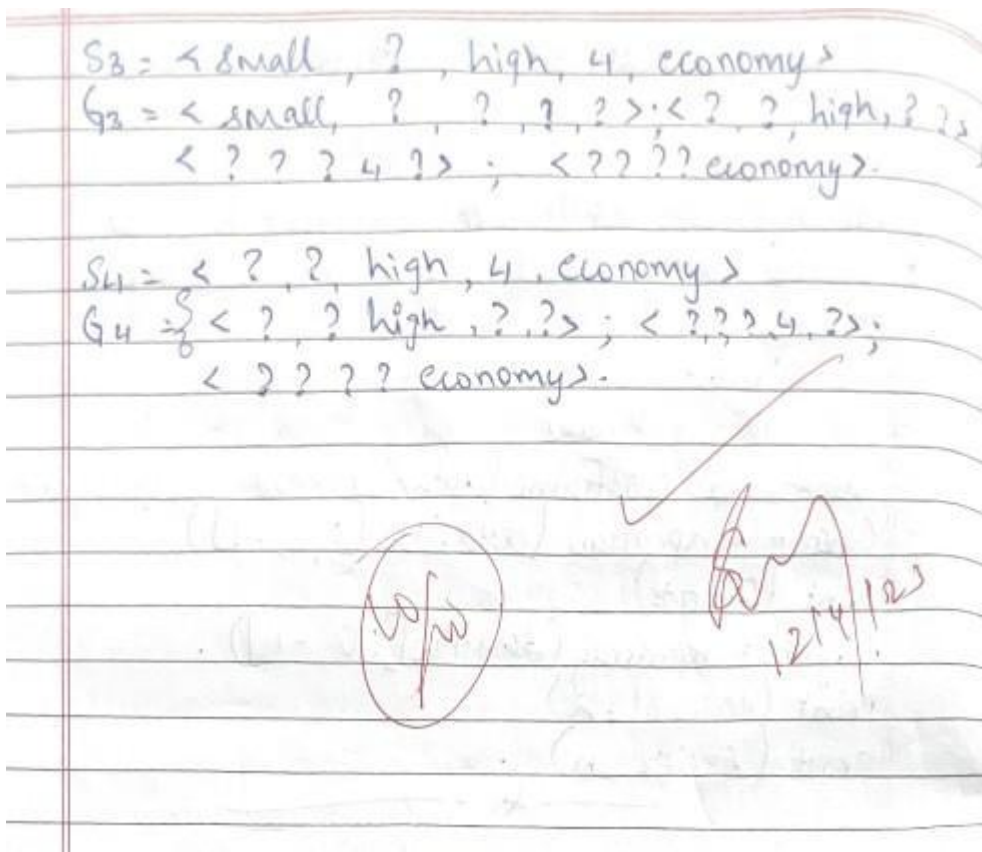 S3 = < small , ? , high, 4, economy>
G3 = < small, ? , ? , ? , ? > ; < ? , ? , high, ? ? >
< ? ? ? 4 ? > ; < ? ? ? ? economy>.
S4 = < ? , ? high , 4 , economy >
G4 = { < ? , ? high , ? , ? > ; < ? , ? , ? , 4 , ? > ;
< ? ? ? ? economy > .
12/4/23